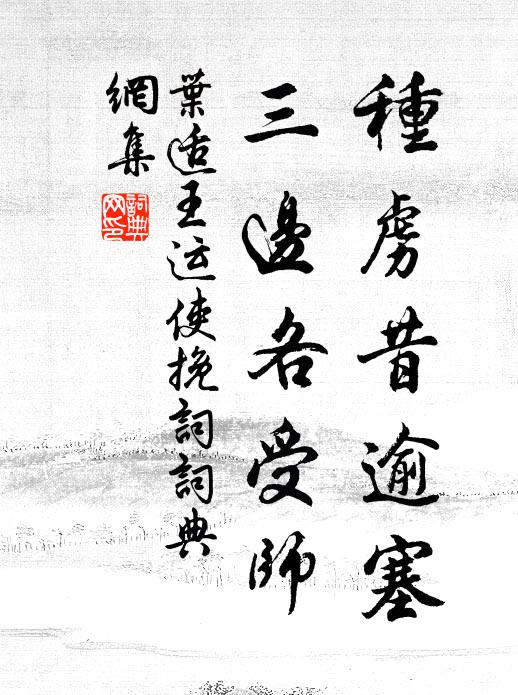 種虜昔逾塞
三邊各受師
葉适王运使挽詞詞典
網集
詞典
网印